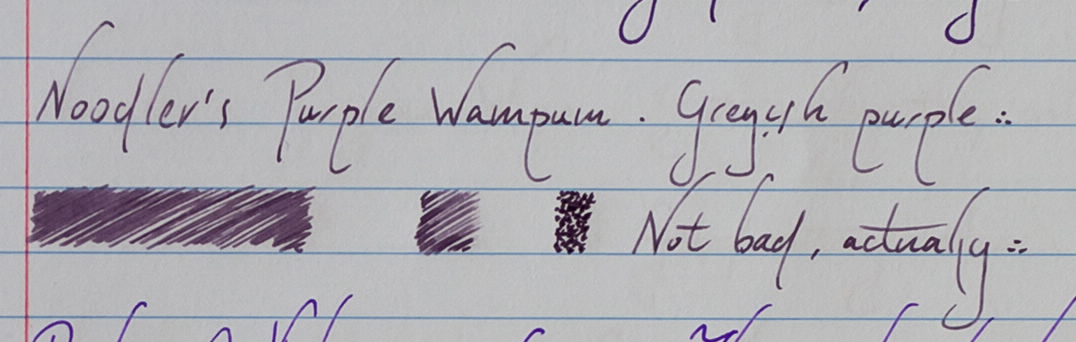 Noodler's Purple Wampum. Greyish purple :.
Not bad, actually :.